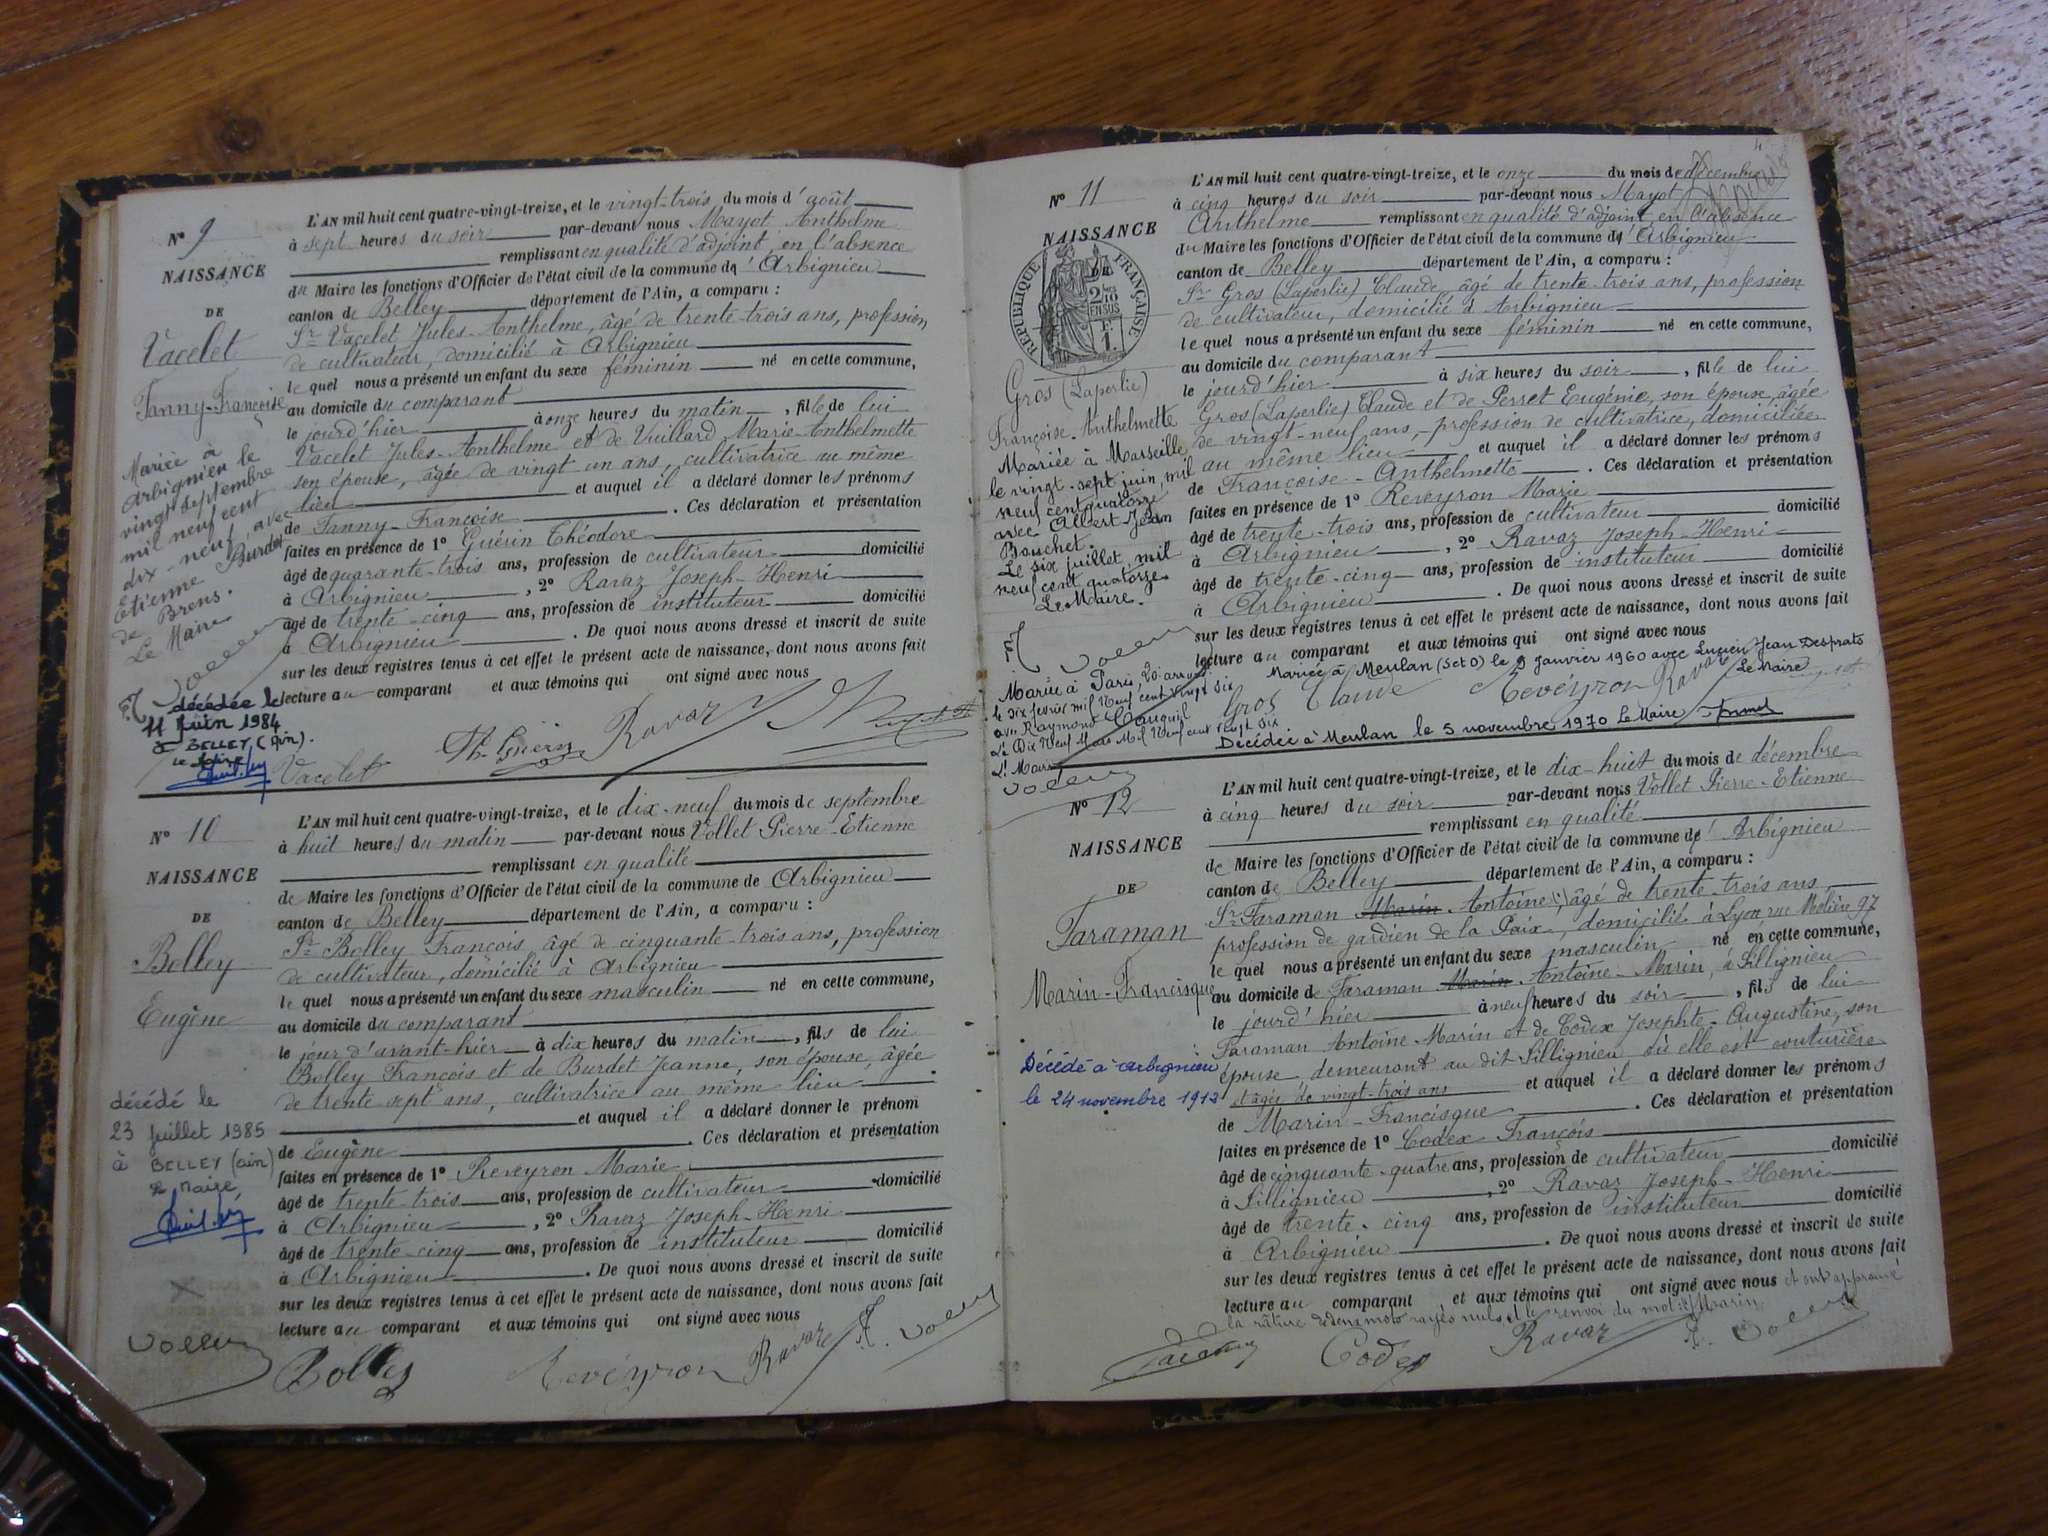 N° 9
NAISSANCE
DE
Vacelet
Fanny-Françoise
Mariée à
Arbignieu le
vingt septembre
mil neuf cent
dix-neuf avec
Etienne Burdet
de Brens.
Le Maire
décédée le
11 juin 1984
à BELLEY (Ain).
Le Maire
L'AN mil huit cent quatre-vingt-treize, et le vingt-trois du mois d'août
à sept heures du soir par-devant nous Mayot Anthelme
remplissant en qualité d'adjoint, en l'absence
du Maire les fonctions d'Officier de l'état civil de la commune d'Arbignieu
canton de Belley département de l'Ain, a comparu :
Sr Vacelet Jules-Anthelme, âgé de trente-trois ans, profession
de cultivateur, domicilié à Arbignieu
lequel nous a présenté un enfant du sexe féminin né en cette commune,
au domicile du comparant
le jourd'hier à onze heures du matin, fille de lui
Vacelet Jules-Anthelme et de Vuillard Marie-Anthelmette
son épouse, âgée de vingt un ans, cultivatrice au même
lieu et auquel il a déclaré donner les prénoms
de Fanny-Françoise. Ces déclaration et présentation
faites en présence de 1° Guérin Théodore
âgé de quarante-trois ans, profession de cultivateur domicilié
à Arbignieu, 2° Ravaz Joseph-Henri
âgé de trente-cinq ans, profession de instituteur domicilié
à Arbignieu. De quoi nous avons dressé et inscrit de suite
sur les deux registres tenus à cet effet le présent acte de naissance, dont nous avons fait
lecture au comparant et aux témoins qui ont signé avec nous
Vacelet Th. Guérin Ravaz
N° 10
NAISSANCE
DE
Bolley
Eugène
décédé le
23 juillet 1985
à BELLEY (Ain)
Le Maire
L'AN mil huit cent quatre-vingt-treize, et le dix-neuf du mois de septembre
à huit heures du matin par-devant nous Vollet Pierre-Etienne
remplissant en qualité
de Maire les fonctions d'Officier de l'état civil de la commune de Arbignieu
canton de Belley département de l'Ain, a comparu :
Sr Bolley François, âgé de cinquante-trois ans, profession
de cultivateur, domicilié à Arbignieu
lequel nous a présenté un enfant du sexe masculin né en cette commune,
au domicile du comparant
le jour d'avant-hier à dix heures du matin, fils de lui
Bolley François et de Burdet Jeanne, son épouse, âgée
de trente sept ans, cultivatrice au même lieu
et auquel il a déclaré donner le prénom
de Eugène. Ces déclaration et présentation
faites en présence de 1° Reveyron Marie
âgé de trente-trois ans, profession de cultivateur domicilié
à Arbignieu, 2° Ravaz Joseph-Henri
âgé de trente-cinq ans, profession de instituteur domicilié
à Arbignieu. De quoi nous avons dressé et inscrit de suite
sur les deux registres tenus à cet effet le présent acte de naissance, dont nous avons fait
lecture au comparant et aux témoins qui ont signé avec nous
Vollet Bolley Revéyron Ravaz E. Vollet
4
N° 11
NAISSANCE
DE
RÉPUBLIQUE FRANÇAISE
2/10
EN SUS
F.
1.
Gros (Laperlie)
Françoise-Anthelmette
Mariée à Marseille
le vingt-sept juin, mil
neuf cent quatorze
avec Albert Jean
Bouchet.
Le six juillet, mil
neuf cent quatorze
Le Maire.
E. Vollet
Mariée à Paris 20e arrondt
le six février mil neuf cent vingt six
avec Raymond
Le Dix Neuf Mars Mil Neuf cent vingt six
Le Maire
Vollet
L'AN mil huit cent quatre-vingt-treize, et le onze du mois de décembre
à cinq heures du soir par-devant nous Mayot
Anthelme remplissant en qualité d'adjoint, en l'absence
du Maire les fonctions d'Officier de l'état civil de la commune d'Arbignieu
canton de Belley département de l'Ain, a comparu :
Sr Gros (Laperlie) Claude, âgé de trente-trois ans, profession
de cultivateur, domicilié à Arbignieu
lequel nous a présenté un enfant du sexe féminin né en cette commune,
au domicile du comparant
le jourd'hier à six heures du soir, fille de lui
Gros (Laperlie) Claude et de Perret Eugénie, son épouse, âgée
de vingt-neuf ans, profession de cultivatrice, domiciliée
au même lieu et auquel il a déclaré donner les prénoms
de Françoise-Anthelmette. Ces déclaration et présentation
faites en présence de 1° Reveyron Marie
âgé de trente-trois ans, profession de cultivateur domicilié
à Arbignieu, 2° Ravaz Joseph-Henri
âgé de trente-cinq ans, profession de instituteur domicilié
à Arbignieu. De quoi nous avons dressé et inscrit de suite
sur les deux registres tenus à cet effet le présent acte de naissance, dont nous avons fait
lecture au comparant et aux témoins qui ont signé avec nous
Mariée à Meulan (S et O) le 9 janvier 1960 avec Lucien Jean Desprats
Le Maire
Gros Claude Revéyron Ravaz
Décédée à Meulan le 5 novembre 1970 Le Maire
N° 12
NAISSANCE
DE
Faraman
Marin-Francisque
Décédé à Arbignieu
le 24 novembre 1912
L'AN mil huit cent quatre-vingt-treize, et le dix-huit du mois de décembre
à cinq heures du soir par-devant nous Vollet Pierre-Etienne
remplissant en qualité
de Maire les fonctions d'Officier de l'état civil de la commune d'Arbignieu
canton de Belley département de l'Ain, a comparu :
Sr Faraman Marin Antoine, âgé de trente-trois ans
profession de gardien de la Paix, domicilié à Lyon, rue Molière 97
lequel nous a présenté un enfant du sexe masculin né en cette commune,
au domicile de Faraman Marin Antoine-Marin, à Sillignieu
le jourd'hier à neuf heures du soir, fils de lui
Faraman Antoine-Marin et de Codex Josephte-Augustine, son
épouse, demeurant au dit Sillignieu où elle est couturière
et âgée de vingt-trois ans et auquel il a déclaré donner les prénoms
de Marin-Francisque. Ces déclaration et présentation
faites en présence de 1° Codex François
âgé de cinquante-quatre ans, profession de cultivateur domicilié
à Sillignieu, 2° Ravaz Joseph-Henri
âgé de trente-cinq ans, profession de instituteur domicilié
à Arbignieu. De quoi nous avons dressé et inscrit de suite
sur les deux registres tenus à cet effet le présent acte de naissance, dont nous avons fait
lecture au comparant et aux témoins qui ont signé avec nous et ont approuvé
la râture de deux mots rayés nuls et le renvoi du mot : Marin
Faraman Codex Ravaz E. Vollet